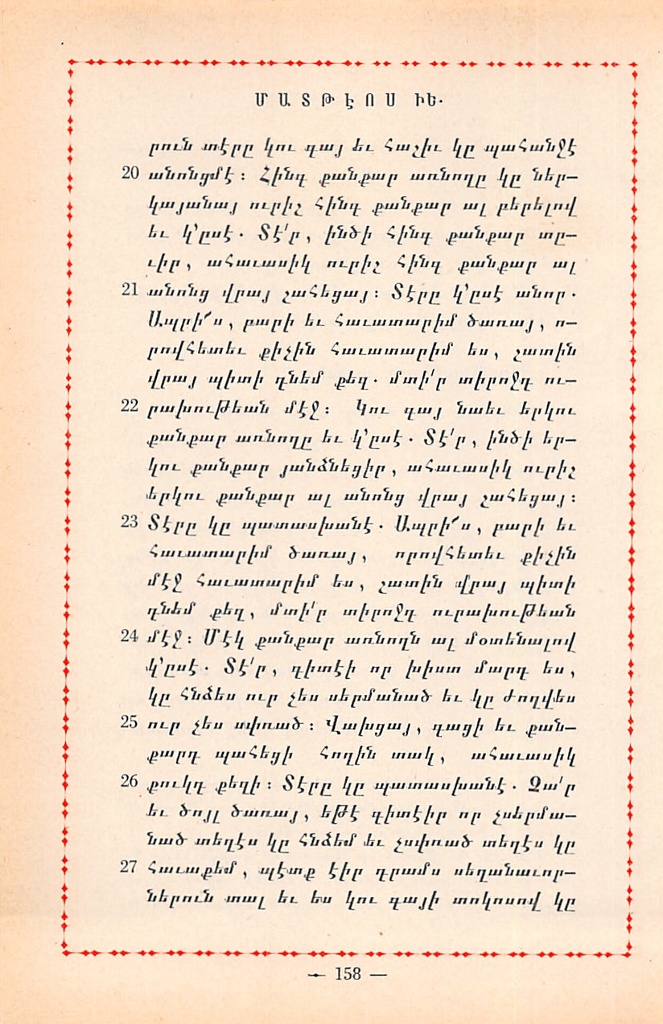 ՄԱՏԹԷՈՍ ԻԵ.
րուն տէրը կու գայ եւ հաշիւ կը պահանջէ
20 անոնցմէ: Հինգ քանքար առնողը կը ներ–
կայանայ ուրիշ հինգ քանքար ալ բերելով
եւ կ'ըսէ. Տէ՛ր, ինծի հինգ քանքար տը–
ւիր, ահաւասիկ ուրիշ հինգ քանքար ալ
21 անոնց վրայ շահեցայ: Տէրը կ'ըսէ անոր.
Ապրի՜ս, բարի եւ հաւատարիմ ծառայ, ո–
րովհետեւ քիչին հաւատարիմ ես, շատին
վրայ պիտի դնեմ քեզ. մտի՛ր տիրոջդ ու–
22 րախութեան մէջ: Կու գայ նաեւ երկու
քանքար առնողը եւ կ'ըսէ. Տէ՛ր, ինծի եր–
կու քանքար յանձնեցիր, ահաւասիկ ուրիշ
երկու քանքար ալ անոնց վրայ շահեցայ:
23 Տէրը կը պատասխանէ. Ապրի՜ս, բարի եւ
հաւատարիմ ծառայ, որովհետեւ քիչին
մէջ հաւատարիմ ես, շատին վրայ պիտի
դնեմ քեզ, մտի՛ր տիրոջդ ուրախութեան
24 մէջ: Մէկ քանքար առնողն ալ մօտենալով
կ'ըսէ. Տէ՛ր, գիտէի որ խիստ մարդ ես,
կը հնձես ուր չես սերմանած եւ կը ժողվես
25 ուր չես սփռած: Վախցայ, գացի եւ քան–
քարդ պահեցի հողին տակ, ահաւասիկ
26 քուկդ քեզի: Տէրը կը պատասխանէ. Չա՛ր
եւ ծոյլ ծառայ, եթէ գիտէիր որ չսերմա–
նած տեղէս կը հնձեմ եւ չսփռած տեղէս կը
27 հաւաքեմ, պէտք էիր դրամս սեղանաւոր–
ներուն տալ եւ ես կու գայի տոկոսով կը
— 158 —